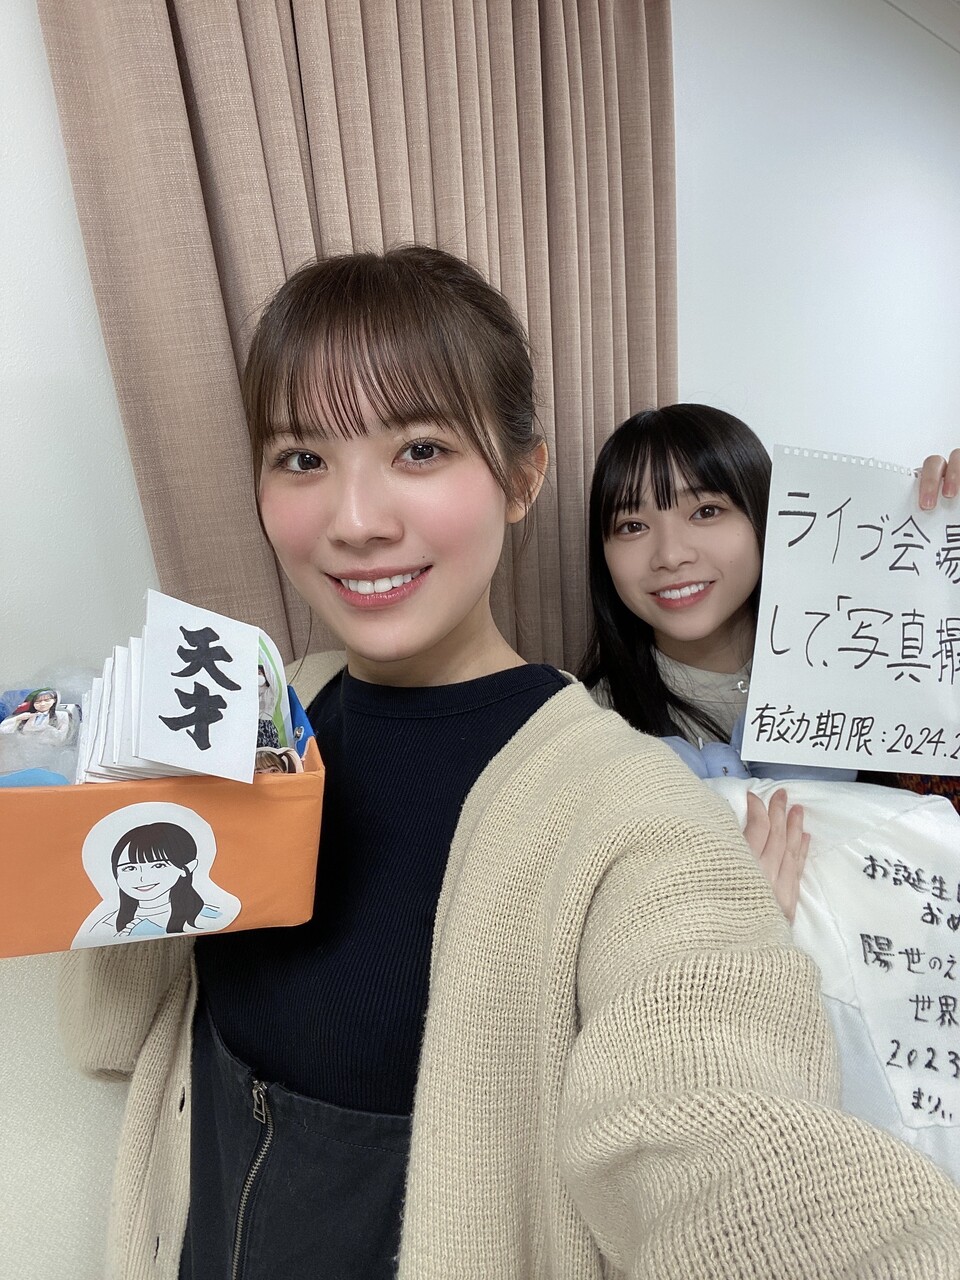 天才
ライブ会場
して、「写真撮
有効期限:2024.2
お誕生
おめ
陽世のえ
世界
2023
まりぃ